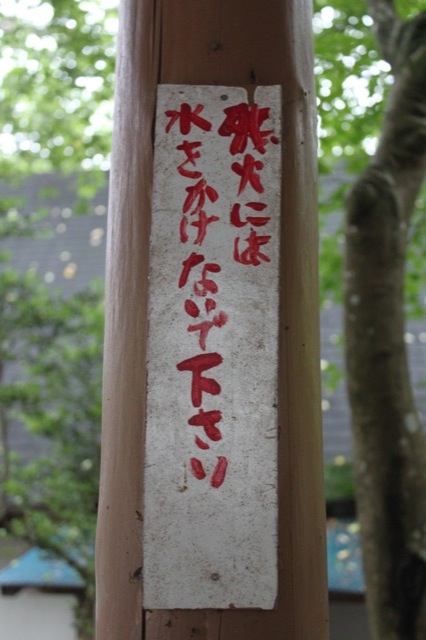 残火には
水をかけないで下さい